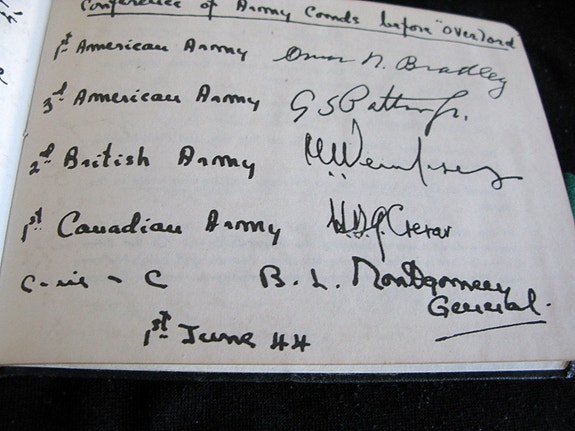 Conference of Army Comds before "Overlord
1st American Army Omar N. Bradley
3rd American Army G S Patton Jr.
2nd British Army M Dempsey
1st Canadian Army H.D.G. Crerar
C-in-C B. L. Montgomery
General.
1st June 44